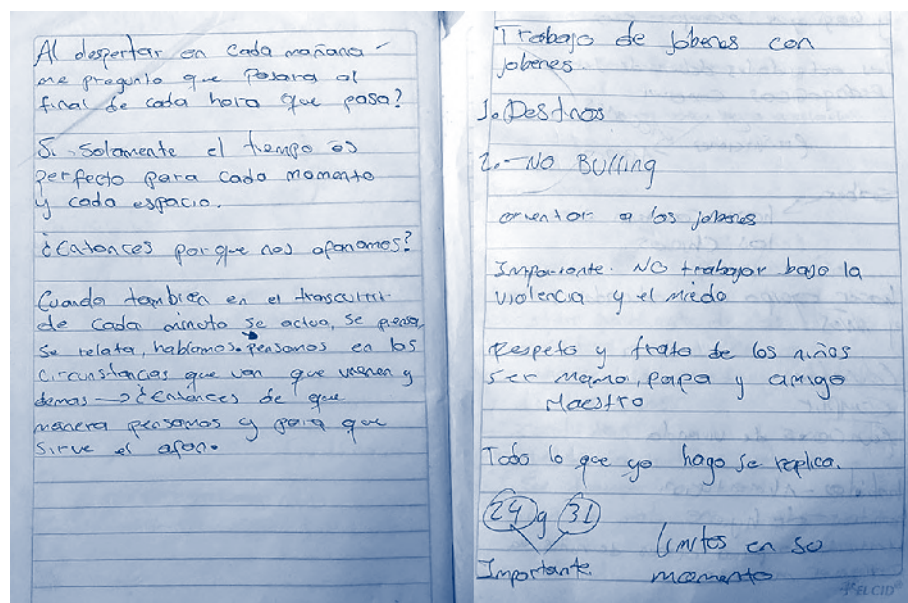 Al despertar en cada mañana
me pregunto que Pasara al
final de cada hora que pasa?
Si, Solamente el tiempo es
perfecto para cada momento
y cada espacio.
¿Entonces porque nos afanamos?
Cuando tambien en el transcurrir
de cada minuto se actua, se piensa,
se relata, hablamos. pensamos en las
circunstancias que van que vienen y
demas → ¿Entonces de que
manera pensamos y para que
sirve el afan.
Trabajo de jobenes con
jobenes.
1. Destinos
2.- NO BUlling
orientar a los jobenes
Importante. NO trabajar bajo la
violencia y el miedo
Respeto y trato de los niños
ser mama, papa y amigo
Maestro
Todo lo que yo hago se replica.
24 y 31
Importante
limites en so
momento
ELCID